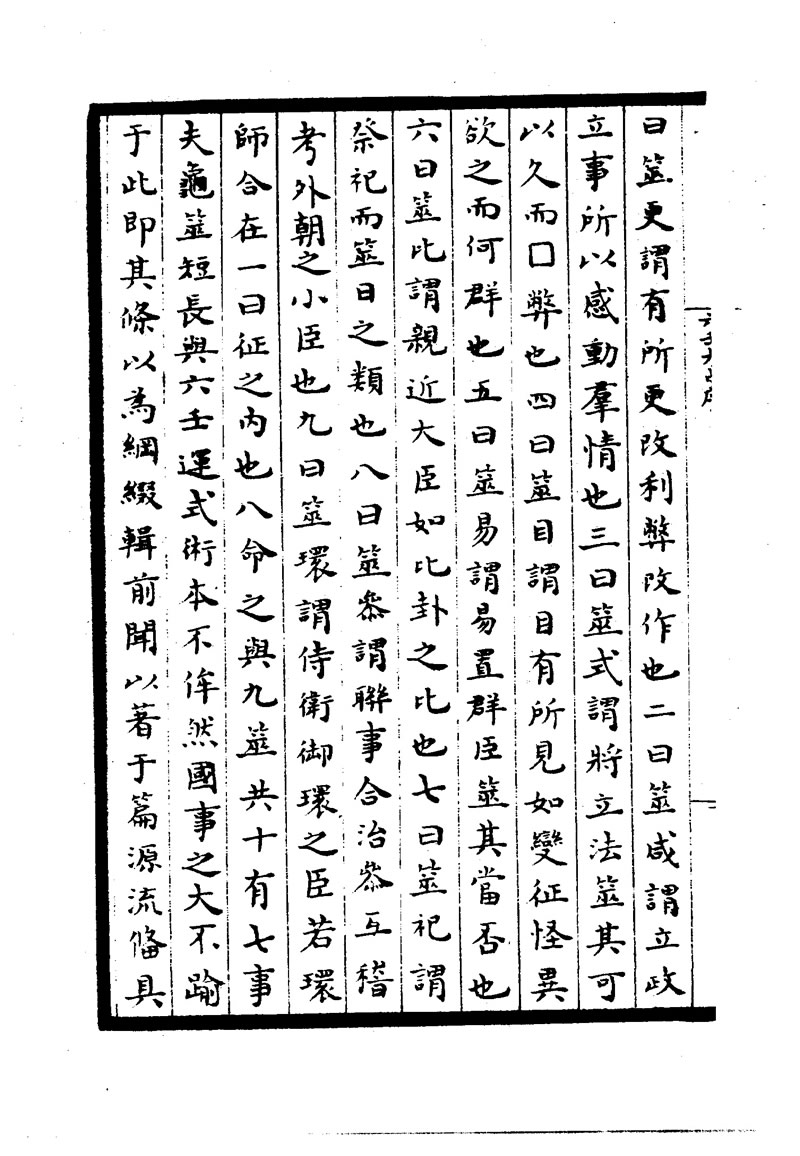 曰筮更謂有所更改利弊改作也二曰筮咸謂立政
立事所以感動羣情也三曰筮式謂將立法筮其可
以久而囗弊也四曰筮目謂目有所見如變征怪異
欲之而何群也五曰筮易謂易置群臣筮其當否也
六曰筮比謂親近大臣如比卦之比也七曰筮祀謂
祭祀而筮日之類也八曰筮叅謂聯事合治叅互稽
考外朝之小臣也九曰筮環謂侍衛御環之臣若環
師合在一曰征之內也八命之與九筮共十有七事
夫龜筮短長與六壬運式術本不侔然國事之大不踰
于此即其條以為綱綴輯前聞以著于篇源流僃具